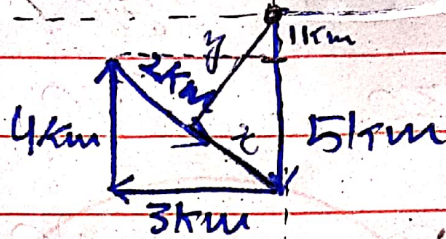 1km
y
2km
4km
x
5km
3km